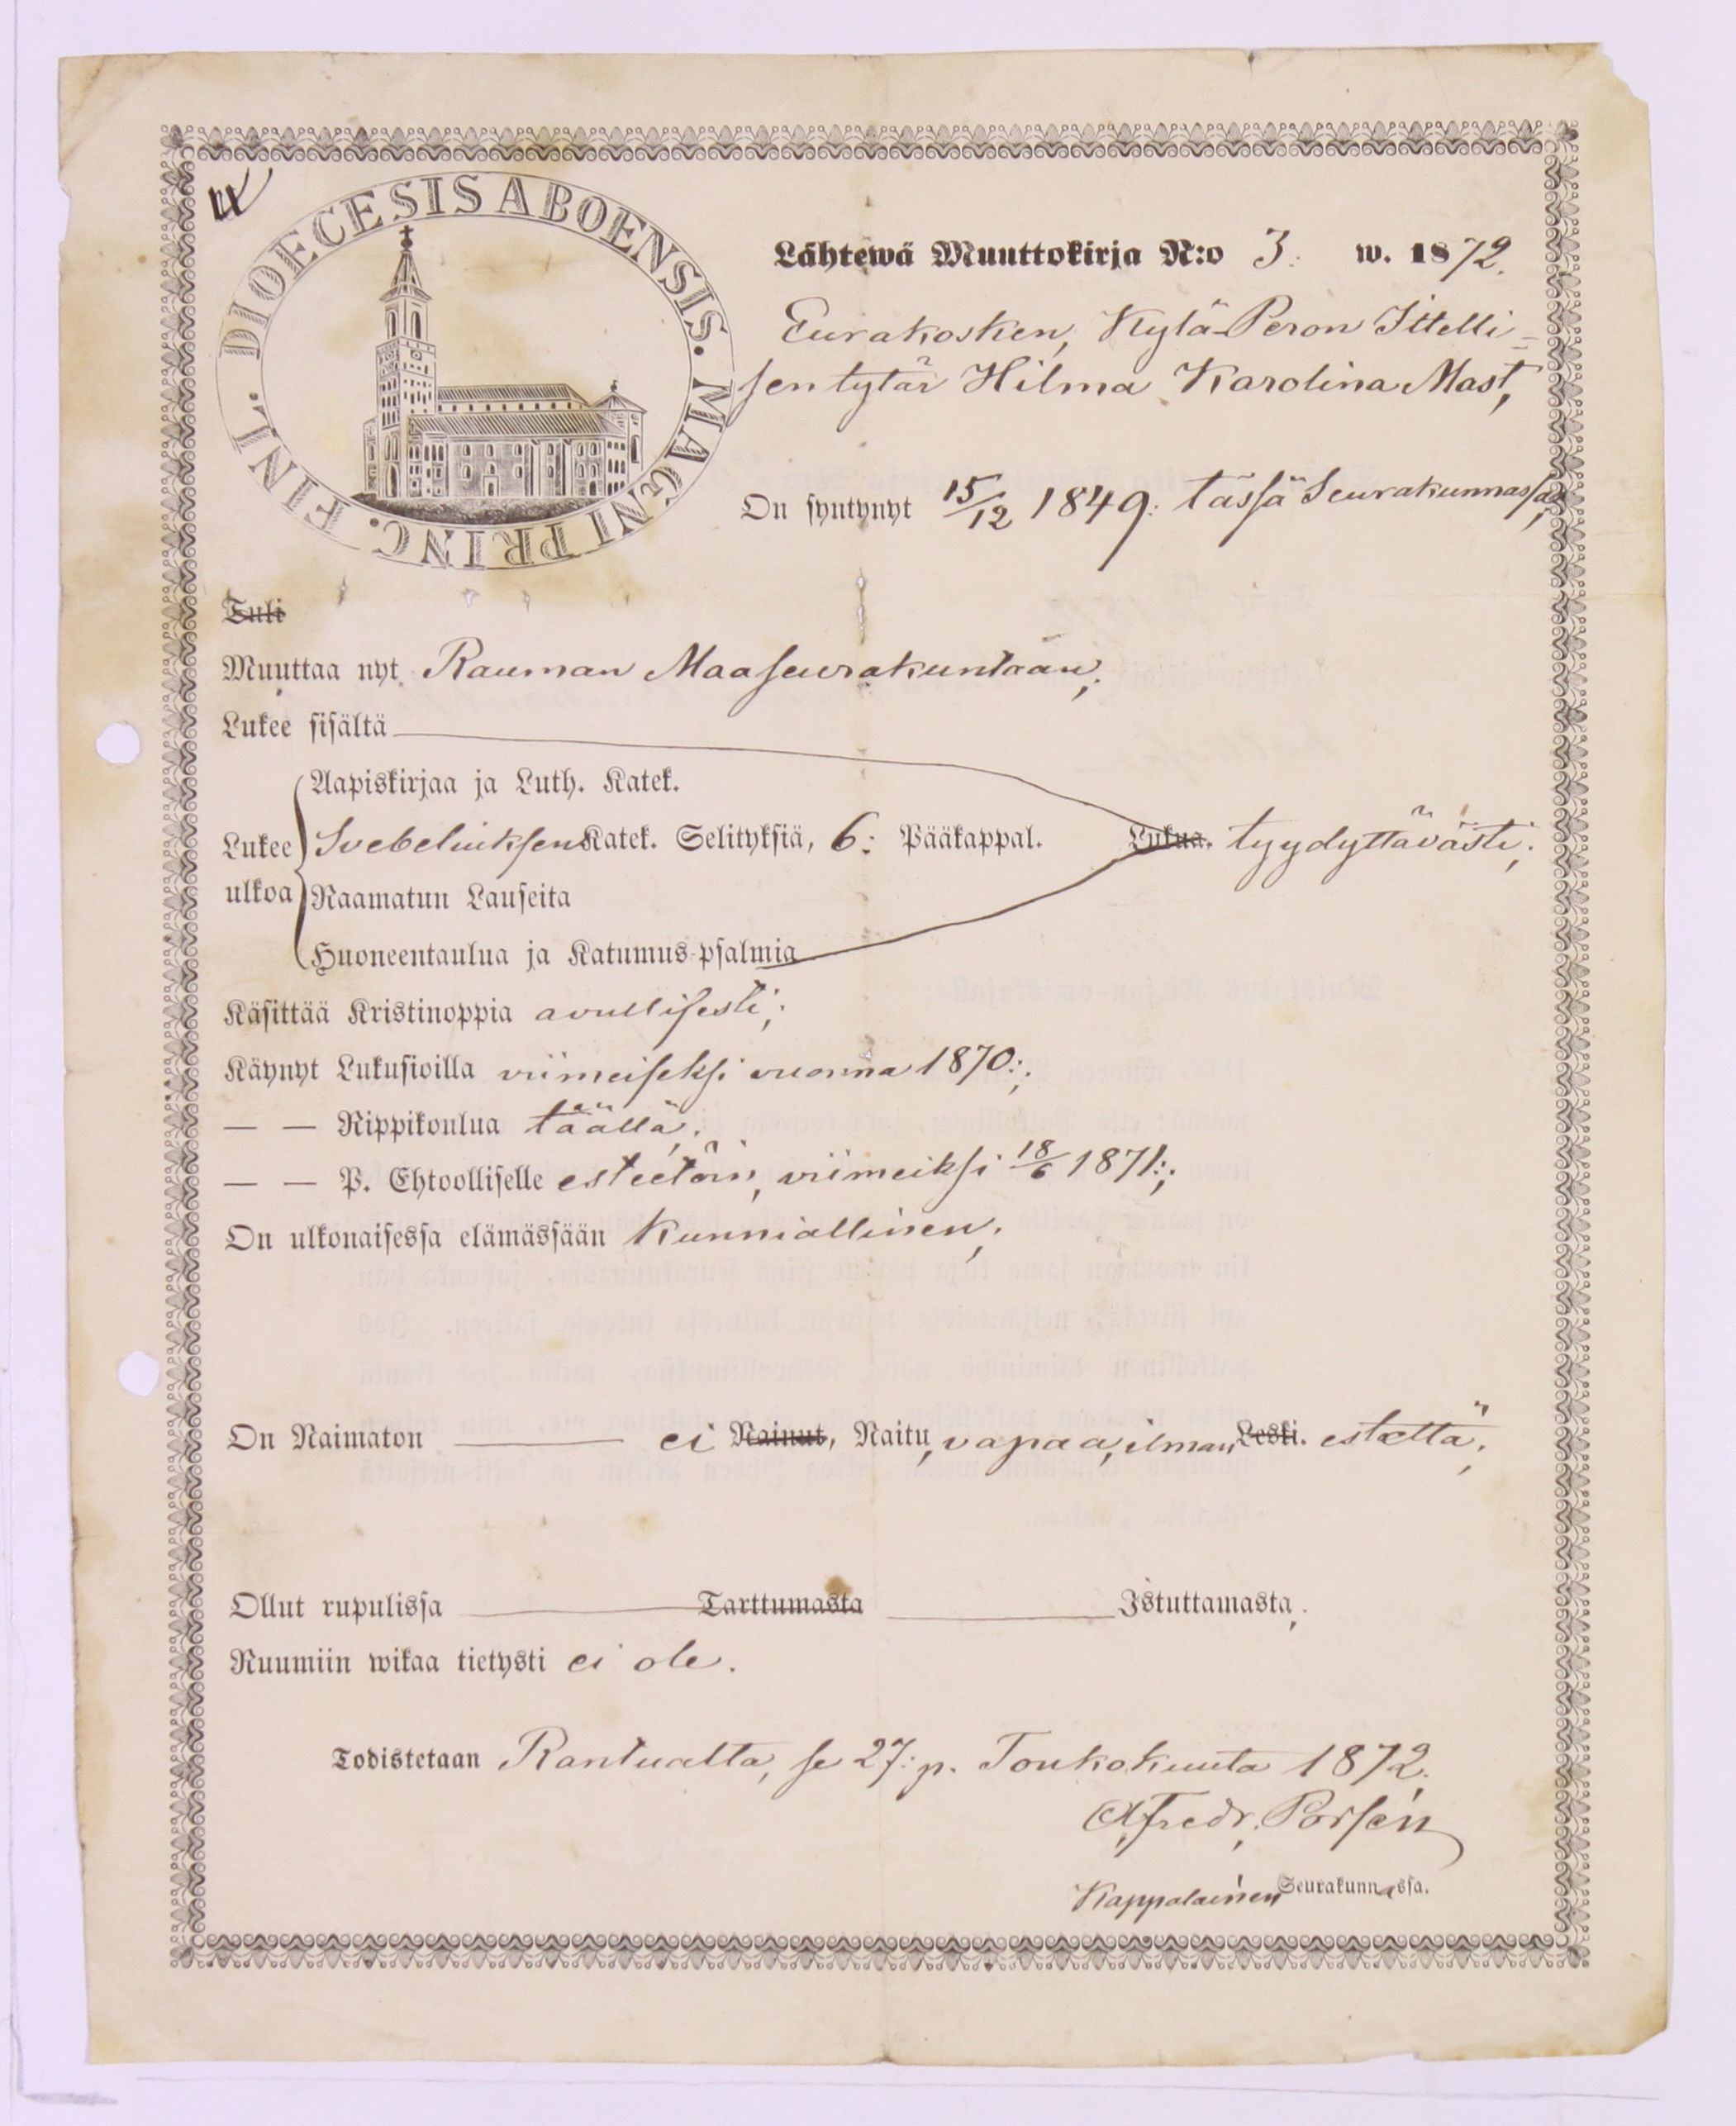 DIOECESIS ABOENSIS. MAGNI PRINC. FINL.
Lähtewä Muuttokirja N:o 3. w. 1872.
Eurakosken, Kylä-Peron Ittelli-
sen tytär Hilma Karolina Mast,
On syntynyt 15/12 1849: tässä Seurakunnassa,
Tuli
Muuttaa nyt Rauman Maaseurakuntaan;
Lukee sisältä
Aapiskirjaa ja Luth. Katek.
Lukee Svebeliuksen Katek. Selityksiä, 6: Pääkappal. Lukua. tyydyttävästi;
ulkoa Raamatun Lauseita
Huoneentaulua ja Katumus-psalmia
Käsittää Kristinoppia avullisesti;
Käynyt Lukusioilla viimeiseksi vuonna 1870:;
— — Rippikoulua täällä;
— — P. Ehtoolliselle esteetöin, viimeiksi 18/6 1871:;
On ulkonaisessa elämässään kunniallinen;
On Naimaton ei Nainut, Naitu, vapaa, ilman Leski. estettä;
Ollut rupulissa Tarttumasta Istuttamasta,.
Ruumiin wikaa tietysti ei ole.
Todistetaan Rantualta, se 27:p. Toukokuuta 1872.
Fredr. Porsén
Kappalainen Seurakunnassa.